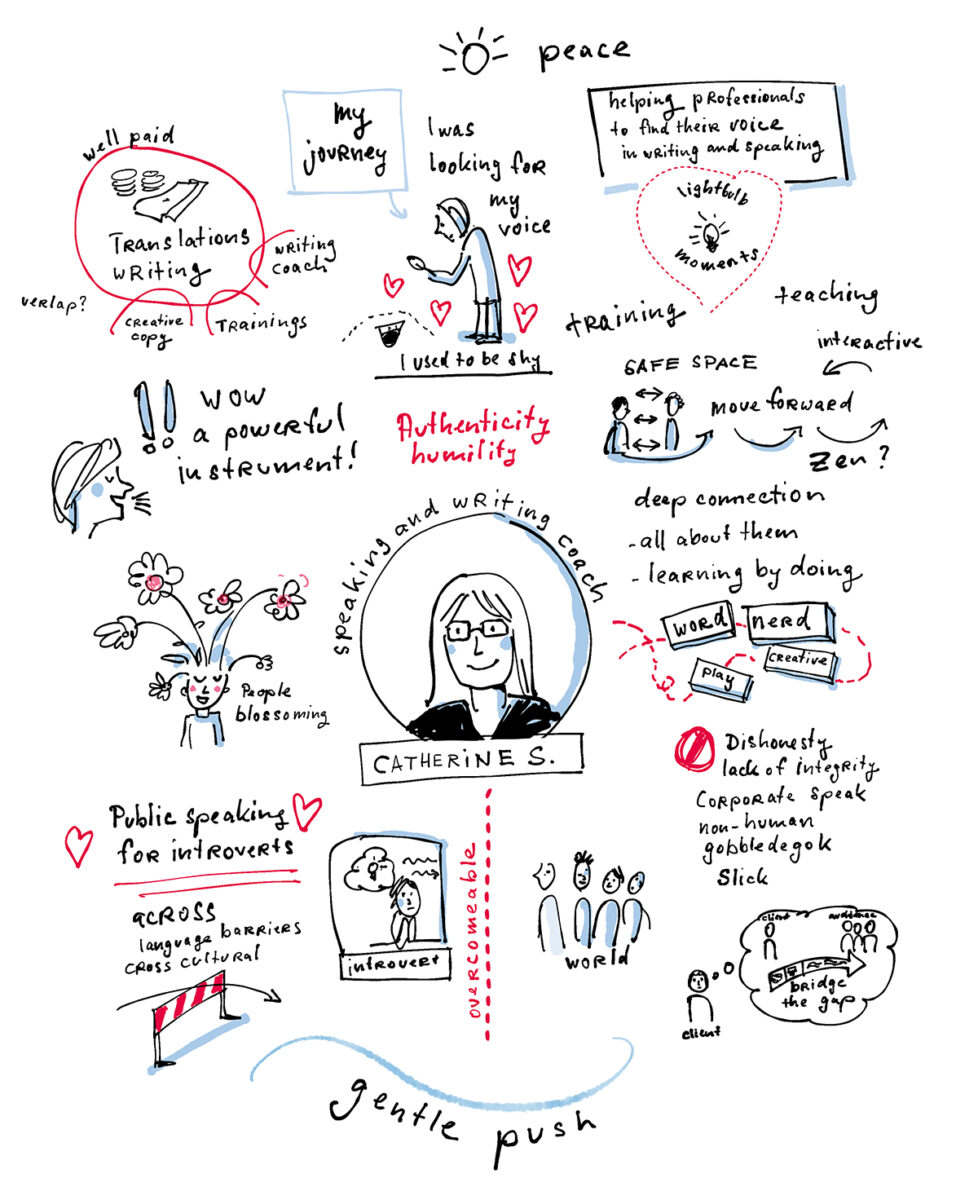 peace
my
journey
I was
looking for
my
voice
I used to be shy
helping professionals
to find their voice
in writing and speaking
lightbulb
moments
training
teaching
interactive
well paid
Translations
writing
writing
coach
verlap?
creative
copy
Trainings
SAFE SPACE
move forward
Zen?
WOW
a powerful
instrument!
Authenticity
humility
deep connection
- all about them
- learning by doing
WORD
nerd
play
creative
speaking and writing coach
CATHERINE S.
People
blossoming
Dishonesty
lack of integrity
corporate speak
non-human
gobbledegok
Slick
Public speaking
for introverts
across
language barriers
cross cultural
introvert
overcomeable
WORLD
client
audience
bridge
the gap
client
gentle push